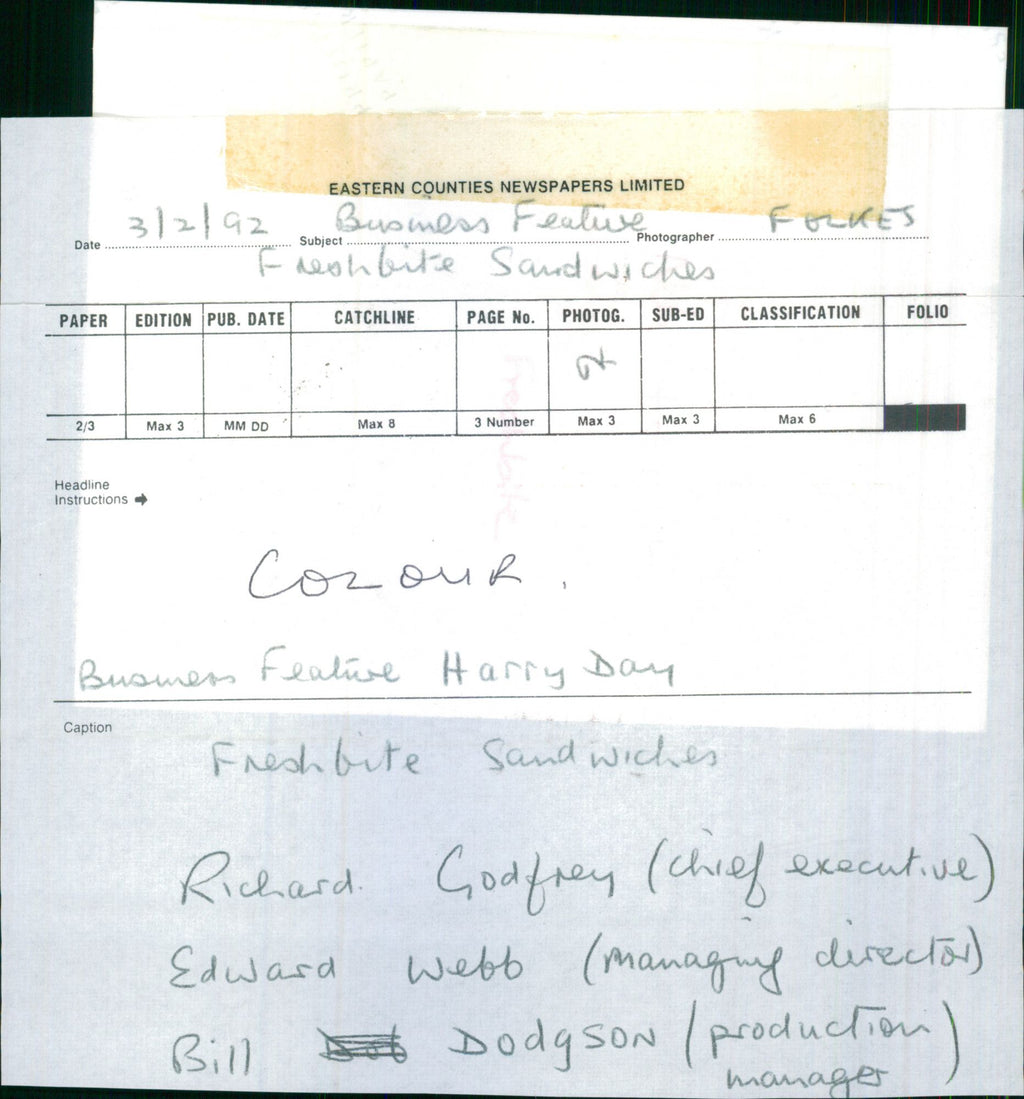 EASTERN COUNTIES NEWSPAPERS LIMITED
Date 3/2/92 Subject Business Feature Photographer FOLKES
Freshbite Sandwiches
PAPER EDITION PUB. DATE CATCHLINE PAGE No. PHOTOG. SUB-ED CLASSIFICATION FOLIO
2/3 Max 3 MM DD Max 8 3 Number Max 3 Max 3 Max 6
Freshbite
Headline
Instructions
COLOUR.
Business Feature Harry Day
Caption
Freshbite Sandwiches
Richard. Godfrey (chief executive)
Edward Webb (managing director)
Bill DodgSON (production
manager)